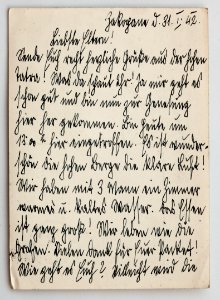 Zakopane d. 31. I. 42.
Liebste Eltern!
Sende Euch recht herzliche Grüße aus der Hohen
Tatra! Was da schaut Ihr! Ja mir geht es
schon gut und bin nur zur Genesung
hier her gekommen. Bin heute um
15 00 hier eingetroffen. Es ist wunder-
schön die hohen Berge die klare Luft!
Wir haben mit 3 Mann ein Zimmer
warmes u. kaltes Wasser. Das Essen
ist ganz groß! Wir leben wie die
Grafen. Vielen Dank für Euer Packet!
Wie geht es Euch? Vielleicht wird die